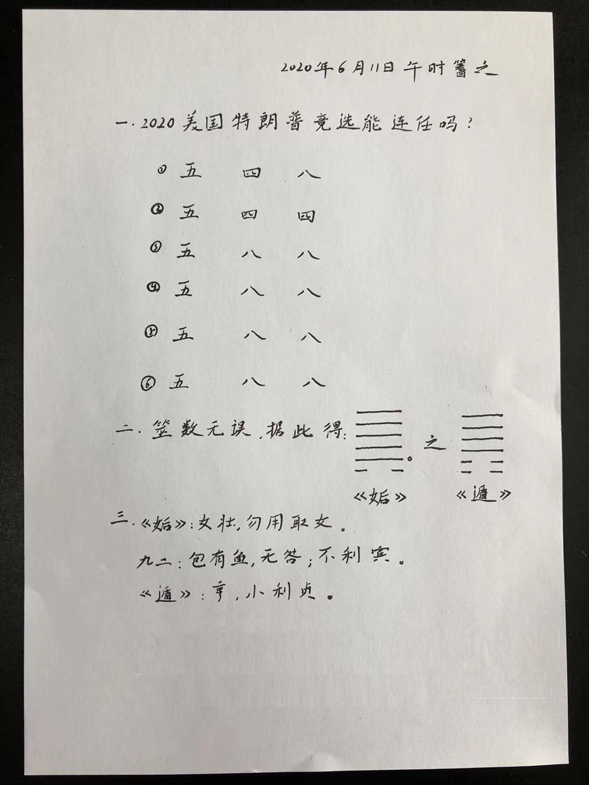 2020年6月11日午时筮之
一.2020美国特朗普竞选能连任吗?
① 五 四 八
② 五 四 四
③ 五 八 八
④ 五 八 八
⑤ 五 八 八
⑥ 五 八 八
二.筮数无误,据此得: 。之
《姤》 《遁》
三.《姤》:女壮,勿用取女。
九二:包有鱼,无咎;不利宾。
《遁》:亨,小利贞。